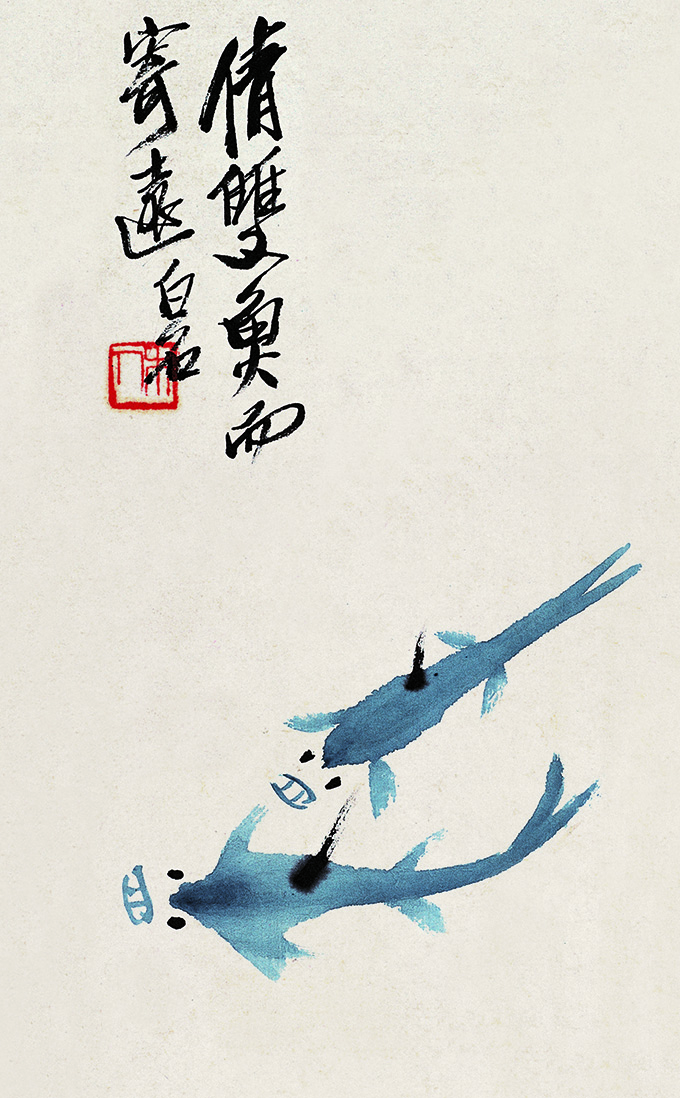 倩雙魚而
寄遠 白石